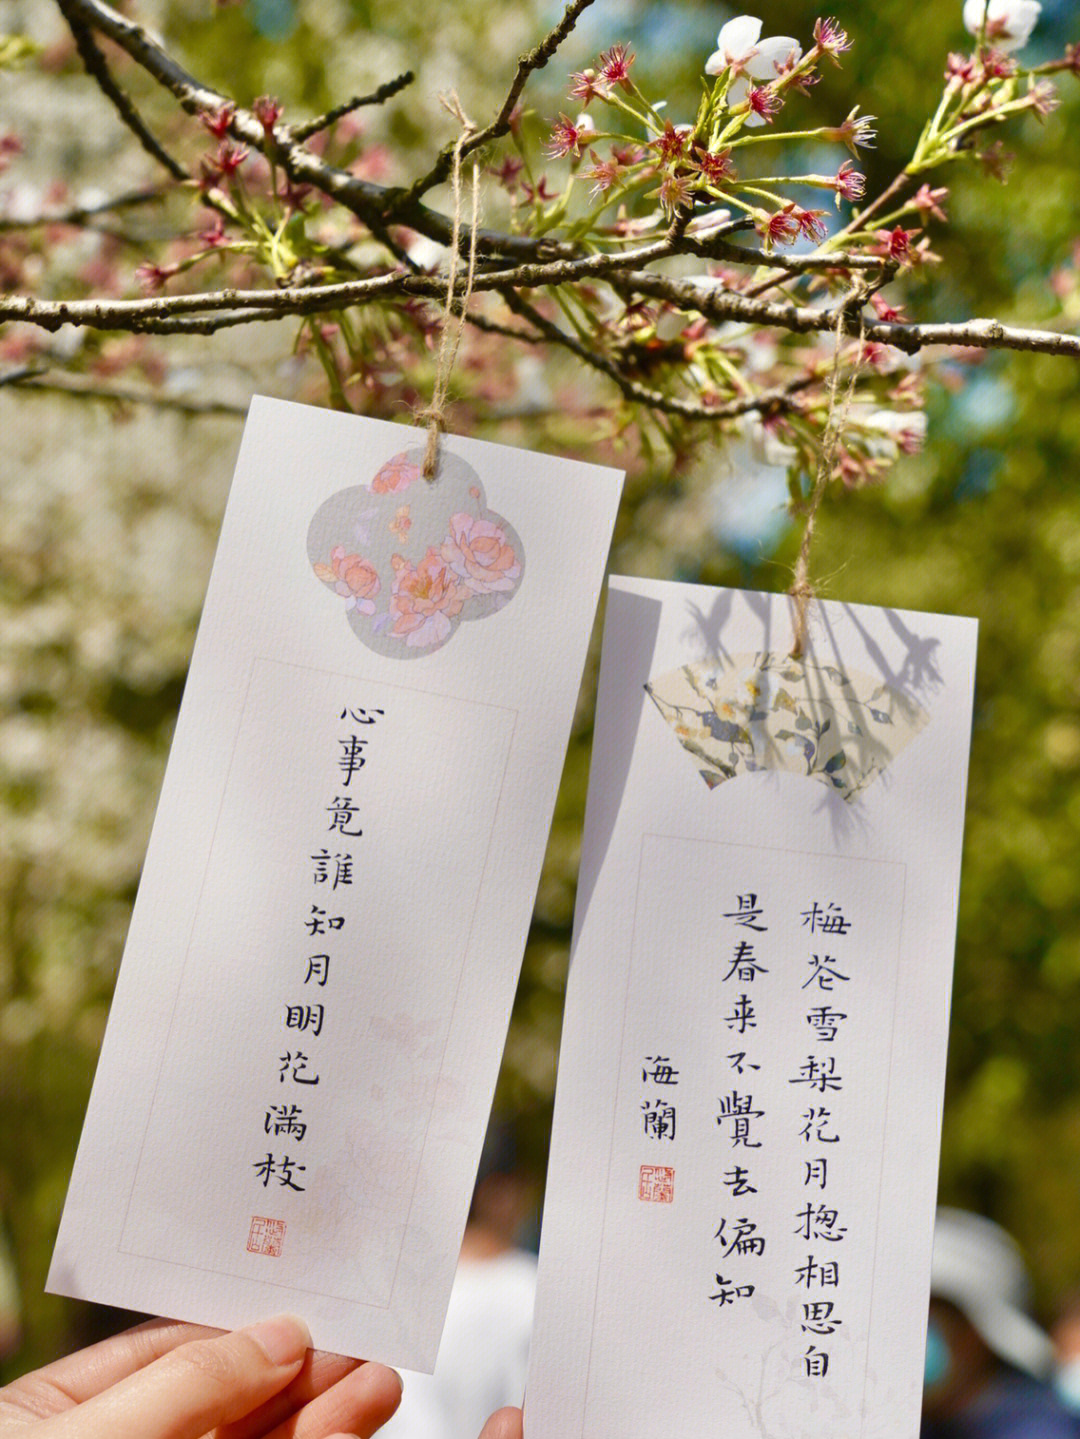 心事竟誰知月明花滿枝
梅花雪梨花月揔相思自
是春来不覺去偏知
海蘭